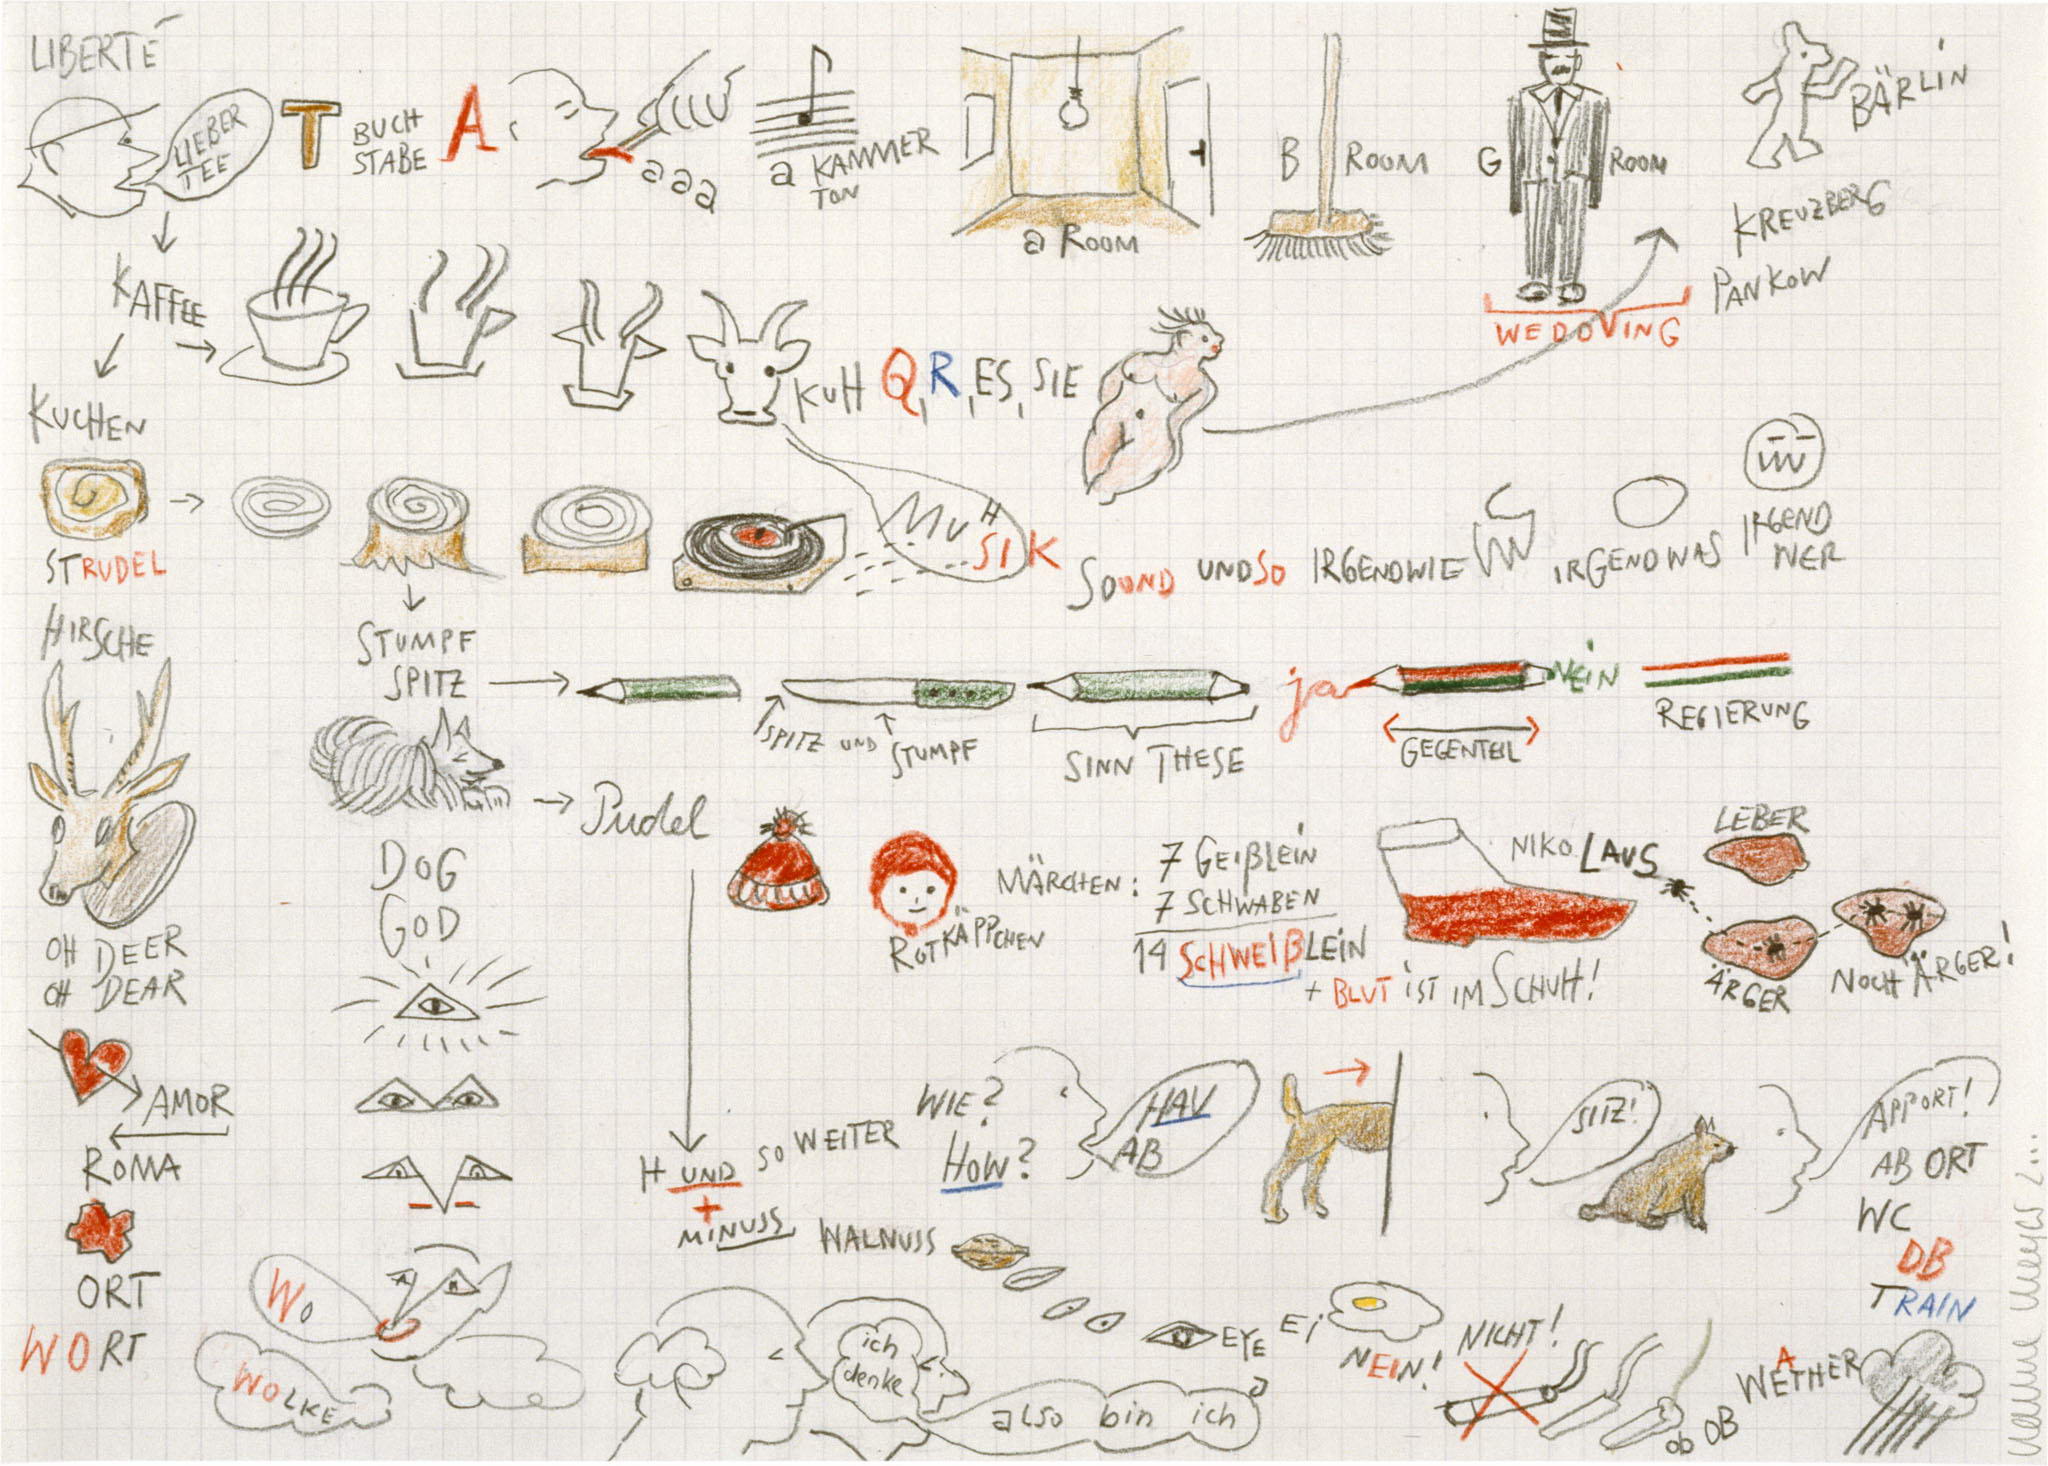 LIBERTÉ
LIEBER
TEE
T
BUCH
STABE
A
aaa
a KAMMER
TON
a ROOM
B ROOM
G ROOM
WEDOVING
BÄRLIN
KREUZBERG
PANKOW
KAFFEE
KUH Q, R, ES, SIE
KUCHEN
STRUDEL
MUH
SIK
SOUND UNDSO IRGENDWIE
IRGENDWAS
IRGEND
WER
HIRSCHE
STUMPF
SPITZ
SPITZ UND STUMPF
SINN THESE
ja
NEIN
GEGENTEIL
REGIERUNG
Pudel
DOG
GOD
ROTKÄPPCHEN
MÄRCHEN:
7 GEIßLEIN
7 SCHWABEN
14 SCHWEIßLEIN
+ BLUT IST IM SCHUH!
NIKO LAUS
LEBER
ÄRGER
NOCH ÄRGER!
OH DEER
OH DEAR
AMOR
ROMA
ORT
WORT
H UND SO WEITER
+
MINUSS
WALNUSS
WIE?
HOW?
HAU
AB
SITZ!
APPORT!
AB ORT
WC
DB
TRAIN
WO
WOLKE
ich
denke
also bin ich
EYE
EI
NEIN!
NICHT!
ob OB
WETHER
A